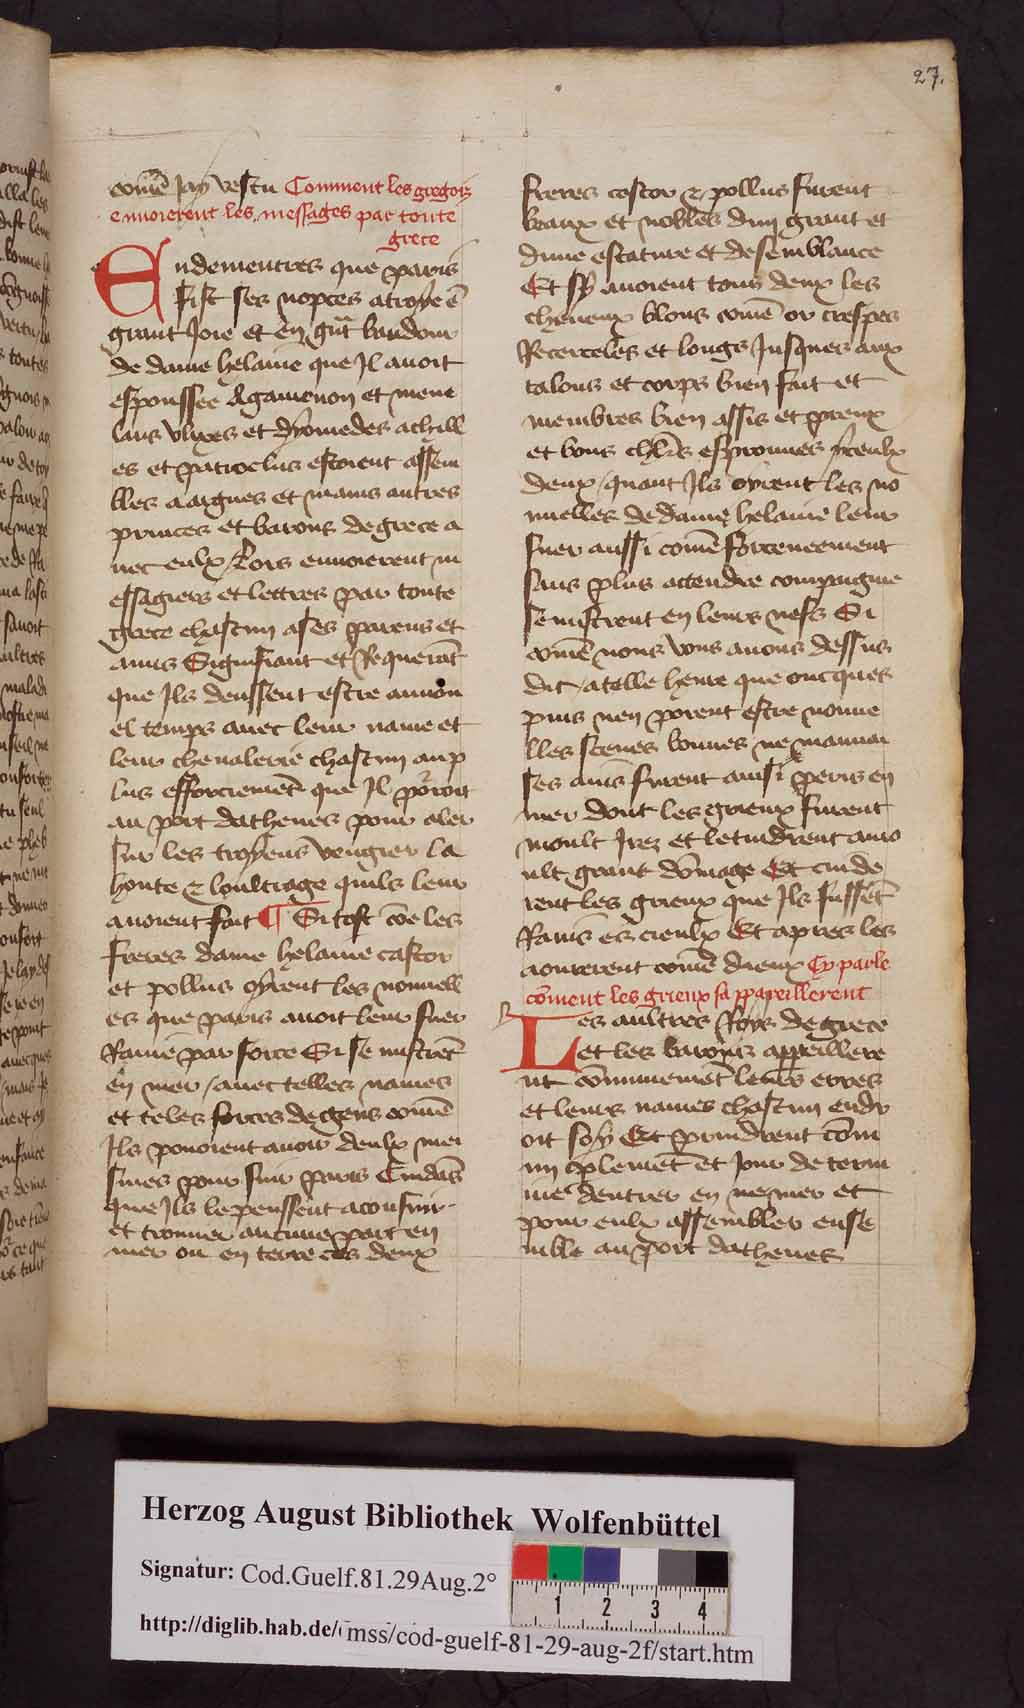 27.
comē jay vestu Comment les gregois
enuoierent les messages par toute
grece
Endementres que paris
fist ses nopces a troye ē
grant Joie et en grāt baudour
de dame helaine que Il auoit
espoussee Agamenon et mene
laus vlixes et dyomedes achill
es et patroclus estoient assem
bles a argues et mains autres
princes et barons de grece a
uec eulx / Lors enuoierent m
essagiers et lettres par toute
grece chascun a ses parens et
amis Signifiant et Requerāt
que Ils deussent estre au nou
el temps auec leur nauie et
leur cheualerie chascun au p
lus efforciemēt que Il porroit
au port dathenes pour aler
sur les troyens vengier la
honte & loultrage quils leur
auoient fait ¶ Si tost cōe les
freres dame helaine castor
et pollus oyrent les nouuell
es que paris auoit leur suer
Rauie par force Si se mistrēt
en mer / auec telles nauies
et teles forces de gens comē
Ils pouoient auoir deulx mei
smes pour suir paris Cuidās
que Ils le peussent aconsuir
et trouuer aucune part en
mer ou en terre ces deux
freres castor & pollus furent
beaux et nobles dun grant et
dune estature et de semblance
Et sy auoient tous deux les
cheueux blons comē or crespes
Recerceles et longs Jusques aux
talons et corps bien fait et
membres bien assis et preux
et bons chlrs esprouues yceulx
deux / quant Ils oyrent les no
uuelles de dame helaine leur
suer aussi comē forceneement
sans plus attendre compaignie
se mistrent en leurs nefs Si
comē nous vous auons dessus
dit / a telle heure que oncques
puis nen porent estre nouue
lles sceues bonnes ne mauuai
ses ains furent ainsi peris en
mer dont les grieux furent
moult Irez et le tindrent a mo
ult grant dōmage Et cuide
rent les grieux que Ils fussēt
Rauis es cieulx Et apres les
aourerent comē dieux Cy parle
cōment les grieux sappareillerent
Les aultres Roys de grece
et les barons appeillere
nt cōmunemēt leurs erres
et leurs nauies chascun endr
oit soy Et prindrent com
un plemēt et Jour de term
ine dentrer en me mer et
pour eulx assembler ense
mble au port dathenes
Herzog August Bibliothek Wolfenbüttel
Signatur: Cod.Guelf.81.29Aug.2°
1 2 3 4
http://diglib.hab.de/mss/cod-guelf-81-29-aug-2f/start.htm